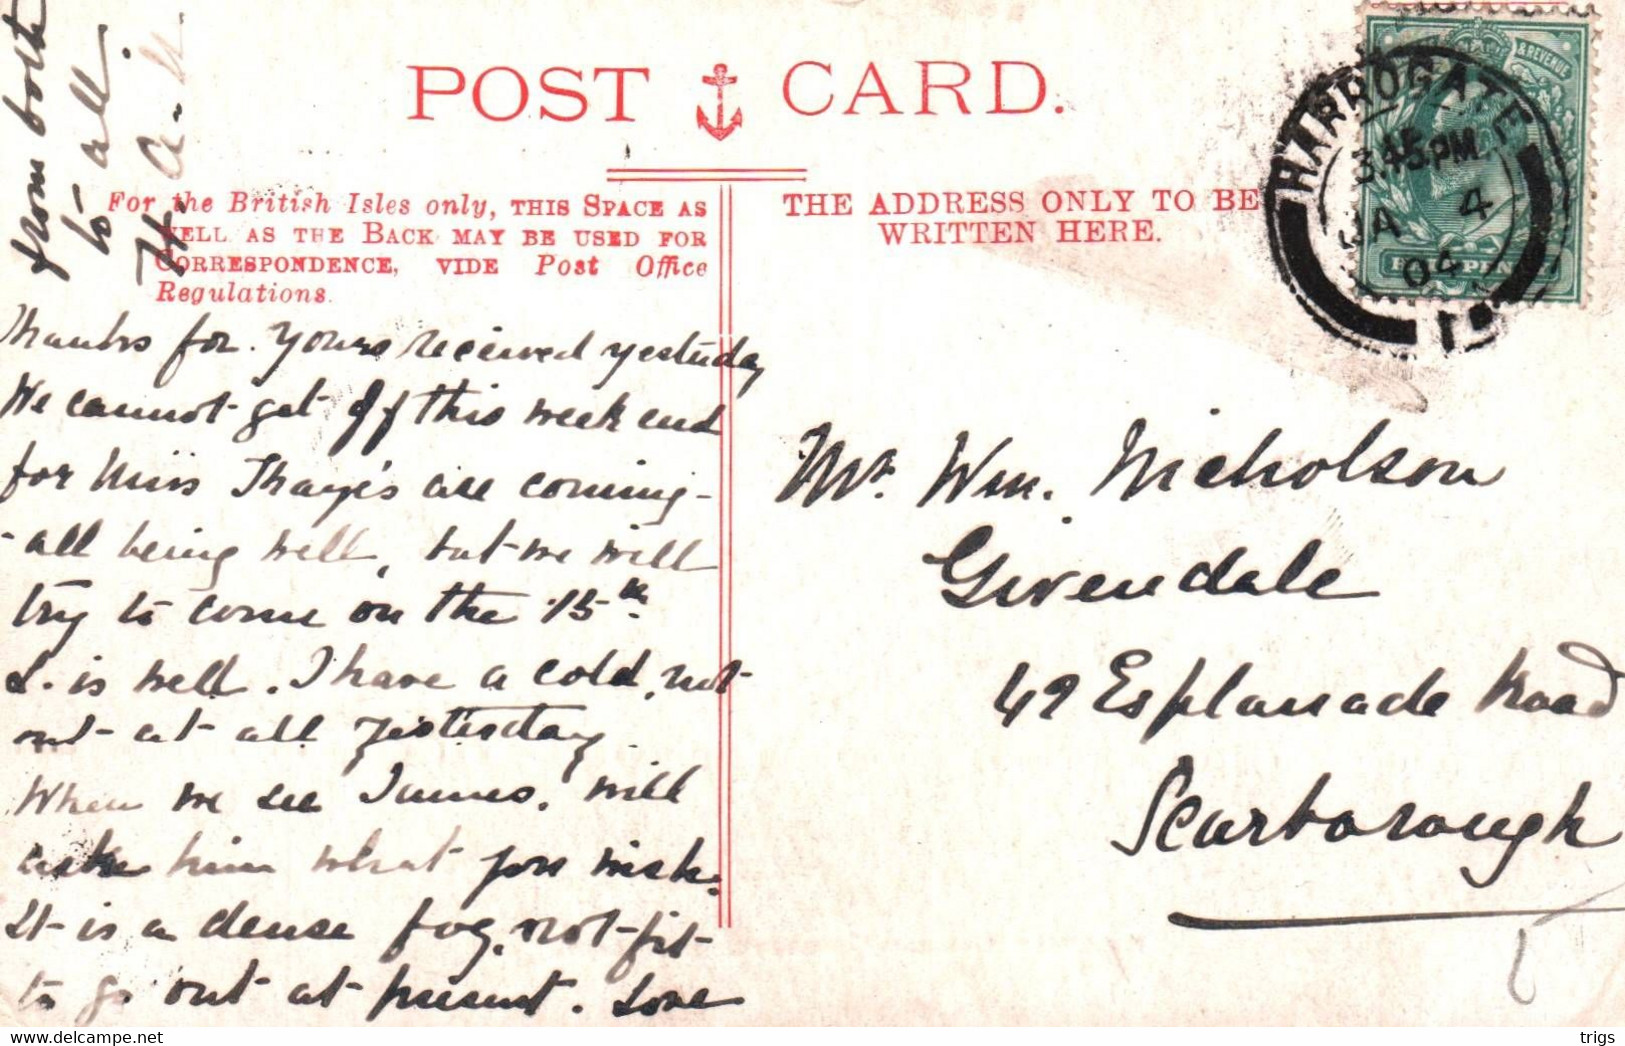 POST CARD.
For the British Isles only, THIS SPACE AS
WELL AS THE BACK MAY BE USED FOR
CORRESPONDENCE, VIDE Post Office
Regulations.
THE ADDRESS ONLY TO BE
WRITTEN HERE.
& REVENUE
HARROGATE
3.45 PM
JA 4
04
Thanks for yours received yesterday
We cannot get off this week end
for Miss are coming-
-all being well, but we will
try to come on the 15th.
L. is well. I have a cold, not
out at all yesterday.
When we see James, will
ask him what you wish.
It is a dense fog, not fit
to go out at present. Love
from both
to all.
H. A. N
Mr. Wm. Nicholson
Givendale
49 Esplanade Road
Scarborough
trigs